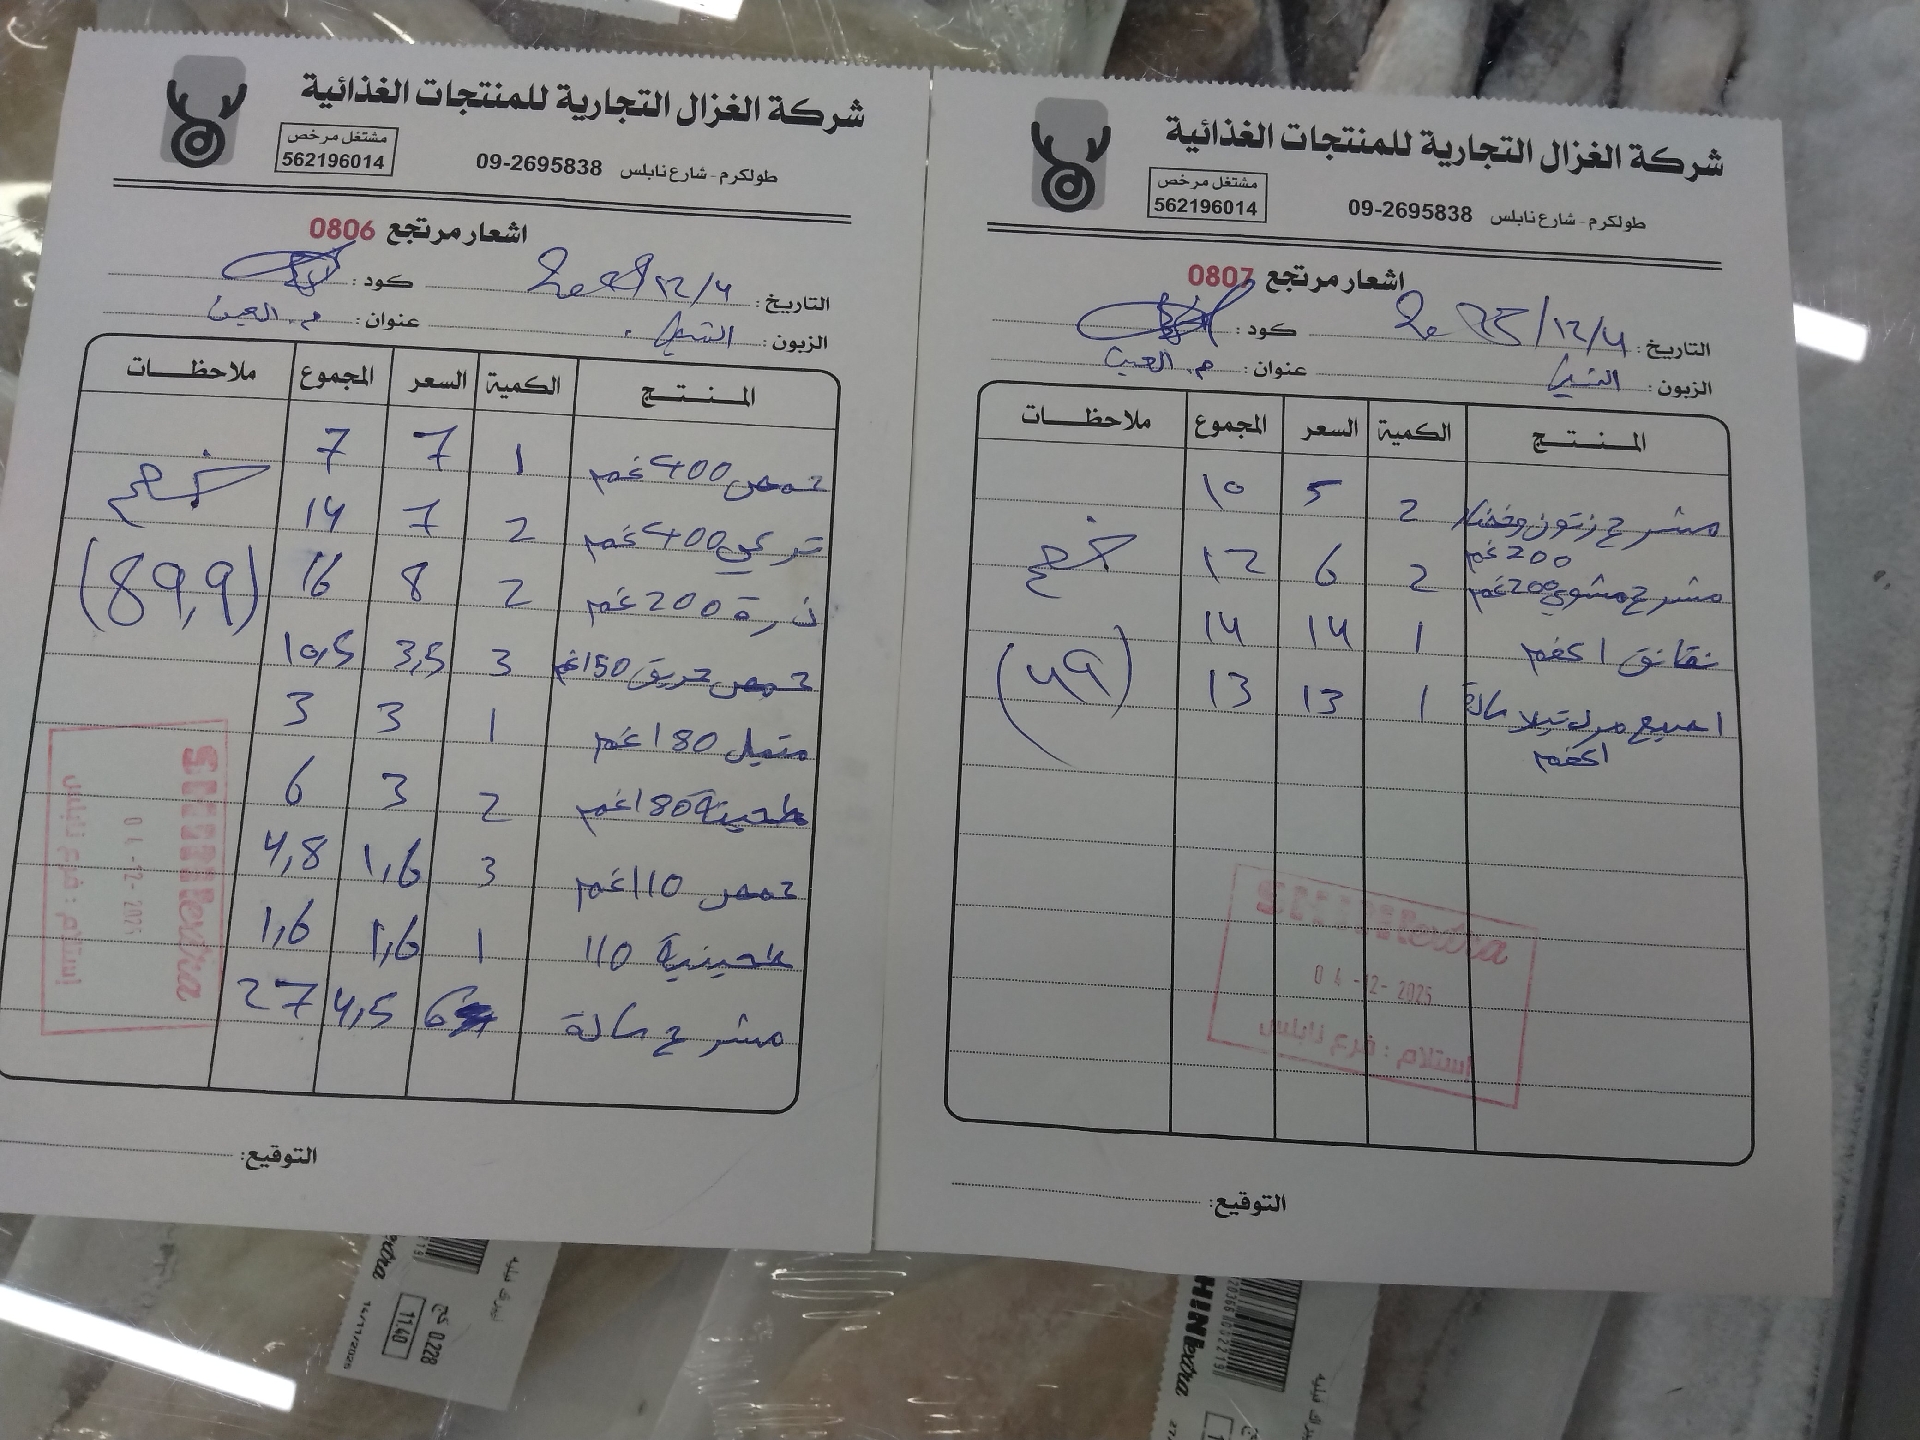 شركة الغزال التجارية للمنتجات الغذائية
مشتغل مرخص
562196014
طولكرم - شارع نابلس 09-2695838
اشعار مرتجع 0806
التاريخ: 12/4 كود:
الزبون: عنوان: م. العين
المنتج الكمية السعر المجموع ملاحظات
حمص 400 غم 1 7 7
تركي 400 غم 2 7 14 خصم
ذرة 200 غم 2 8 16 (89,9)
حمص حريق 150 غم 3 3,5 10,5
متبل 180 غم 1 3 3
طحينة 180 غم 2 3 6
حمص 110 غم 3 1,6 4,8
طحينية 110 1 1,6 1,6
مشرح سادة 6 4,5 27
SHINIextra
04-12-2025
استلام : فرع نابلس
التوقيع:
شركة الغزال التجارية للمنتجات الغذائية
مشتغل مرخص
562196014
طولكرم - شارع نابلس 09-2695838
اشعار مرتجع 0807
التاريخ: 2025/12/4 كود:
الزبون: عنوان: م. العين
المنتج الكمية السعر المجموع ملاحظات
مشرح زيتون وخضار 2 5 10
200 غم
مشرح مشوي 200 غم 2 6 12 خصم
نقانق 1 كغم 1 14 14 (49)
اصبع مرتديلا سادة 1 13 13
1 كغم
SHINIextra
04-12-2025
استلام : فرع نابلس
التوقيع:
extra
14/11/2025
11.40
0.228
SHINIextra